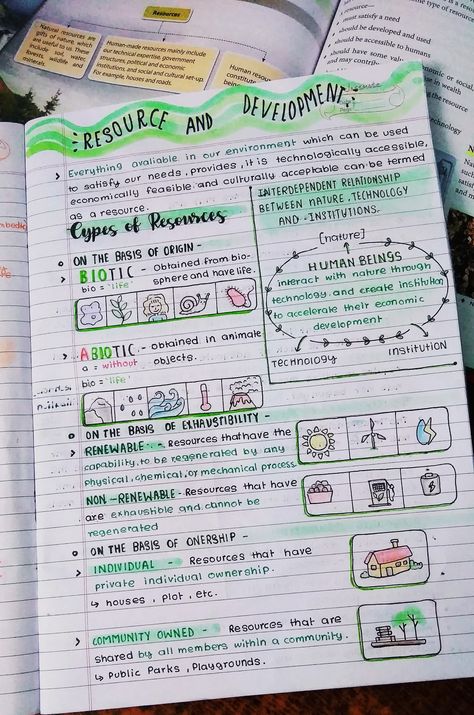 Resources
Natural resources are
gifts of nature, which
are useful to us. These
include soil, water,
forests, wildlife and
minerals.
Human-made resources mainly include
our technical expertise, government
structures, political and economic
institutions, and social and cultural set-up.
For example, houses and roads.
Human resources
constitute
being
resource—
must satisfy a need
should be developed and used
should be accessible to humans
should have some
and may
RESOURCE AND DEVELOPMENT
> Everything avaliable in our environment which can be used
to satisfy our needs, provides, it is technologically accessible,
economically feasible and culturally acceptable can be termed
as a resource.
Types of Resources
ON THE BASIS OF ORIGIN -
> BIOTIC - Obtained from bio-
bio = 'life' sphere and have life.
> ABIOTIC - obtained in animate
a = without objects.
bio = 'life'
INTERDEPENDENT RELATIONSHIP
BETWEEN NATURE, TECHNOLOGY
AND INSTITUTIONS.
[nature]
HUMAN BEINGS
interact with nature through
technology and create institution
to accelerate their economic
development
Technology institution
ON THE BASIS OF EXHAUSTIBILITY -
> RENEWABLE - Resources that have the
capability, to be regenerated by any
physical, chemical, or mechanical process
NON-RENEWABLE - Resources that have
are exhaustible and cannot be
regenerated
ON THE BASIS OF ONERSHIP -
> INDIVIDUAL - Resources that have
private individual ownership.
↳ houses, Plot, etc.
> COMMUNITY OWNED - Resources that are
shared by all members within a community.
↳ Public Parks, Playgrounds.